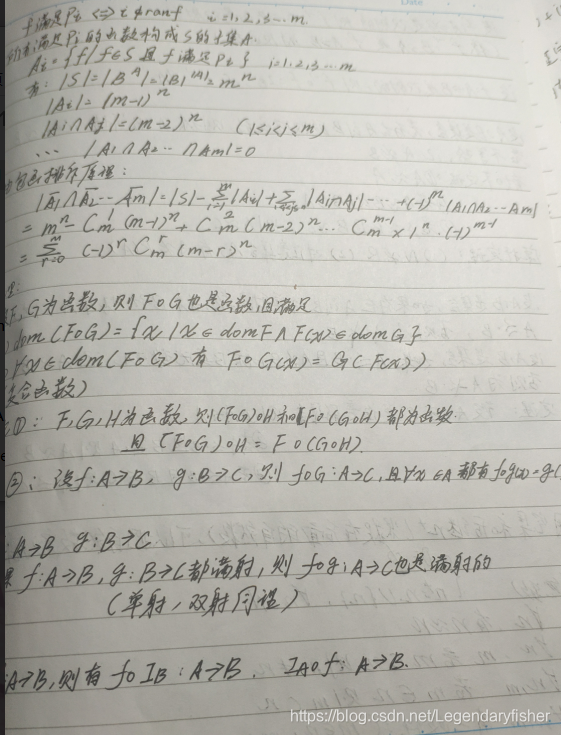 f满足Pi ⇔ i∉ranf i=1,2,3...m
满足Pi的函数构成S的子集A.
Ai={f|f∈S 且 f满足Pi} i=1,2,3...m
有: |S|=|B^A|=|B|^|A|=m^n
|Ai|=(m-1)^n
|Ai∩Aj|=(m-2)^n (1≤i<j≤m)
... |A1∩A2...∩Am|=0
包函排斥原理:
|A̅1∩A̅2...A̅m|=|S|-∑|Ai|+∑|Ai∩Aj|-...+(-1)^m |A1∩A2...Am|
= m^n - Cm^1 (m-1)^n + Cm^2 (m-2)^n ... Cm^(m-1) × 1^n · (-1)^(m-1)
= ∑_{r=0}^m (-1)^r Cm^r (m-r)^n
F,G为函数,则FoG也是函数,且满足
dom(FoG)={x|x∈domF∧F(x)∈domG}
∀x∈dom(FoG) 有 FoG(x)=G(F(x))
复合函数)
①: F,G,H为函数,则(FoG)oH和Fo(GoH)都为函数.
且 (FoG)oH=Fo(GoH).
②: 设f:A→B, g:B→C,则 foG:A→C,且∀x∈A都有fog(x)=g(
:A→B g:B→C
果 f:A→B, g:B→C都满射,则 fog:A→C也是满射的
(单射,双射同理)
:A→B,则有 foIB:A→B. IAof:A→B.
https://blog.csdn.net/Legendaryfisher